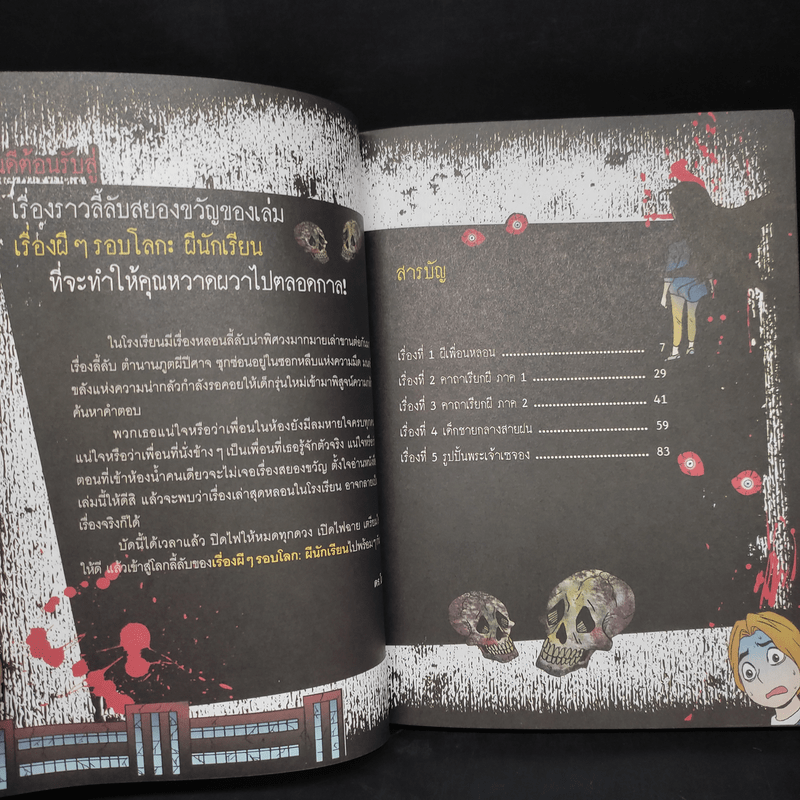 ต้อนรับสู่
เรื่องราวลี้ลับสยองขวัญของเล่ม
เรื่องผี ๆ รอบโลก: ผีนักเรียน
ที่จะทำให้คุณหวาดผวาไปตลอดกาล!
ในโรงเรียนมีเรื่องหลอนลี้ลับน่าพิศวงมากมายเล่าขานต่อกันมา
เรื่องลี้ลับ ตำนานภูตผีปีศาจ ซุกซ่อนอยู่ในซอกหลืบแห่งความมืด
ขลังแห่งความน่ากลัวกำลังรอคอยให้เด็กรุ่นใหม่เข้ามาพิสูจน์ความกล้า
ค้นหาคำตอบ
พวกเธอแน่ใจหรือว่าเพื่อนในห้องยังมีลมหายใจครบทุกคน
แน่ใจหรือว่าเพื่อนที่นั่งข้าง ๆ เป็นเพื่อนที่เธอรู้จักตัวจริง แน่ใจหรือว่า
ตอนที่เข้าห้องน้ำคนเดียวจะไม่เจอเรื่องสยองขวัญ ตั้งใจอ่านหนังสือ
เล่มนี้ให้ดีสิ แล้วจะพบว่าเรื่องเล่าสุดหลอนในโรงเรียน อาจกลายเป็น
เรื่องจริงก็ได้
บัดนี้ได้เวลาแล้ว ปิดไฟให้หมดทุกดวง เปิดไฟฉาย
ให้ดี แล้วเข้าสู่โลกลี้ลับของเรื่องผี ๆ รอบโลก: ผีนักเรียนไปพร้อม ๆ
สารบัญ
เรื่องที่ 1 ผีเพื่อนหลอน ........................................ 7
เรื่องที่ 2 คาถาเรียกผี ภาค 1 ........................................ 29
เรื่องที่ 3 คาถาเรียกผี ภาค 2 ........................................ 41
เรื่องที่ 4 เด็กชายกลางสายฝน ........................................ 59
เรื่องที่ 5 รูปปั้นพระเจ้าเซจอง ........................................ 83